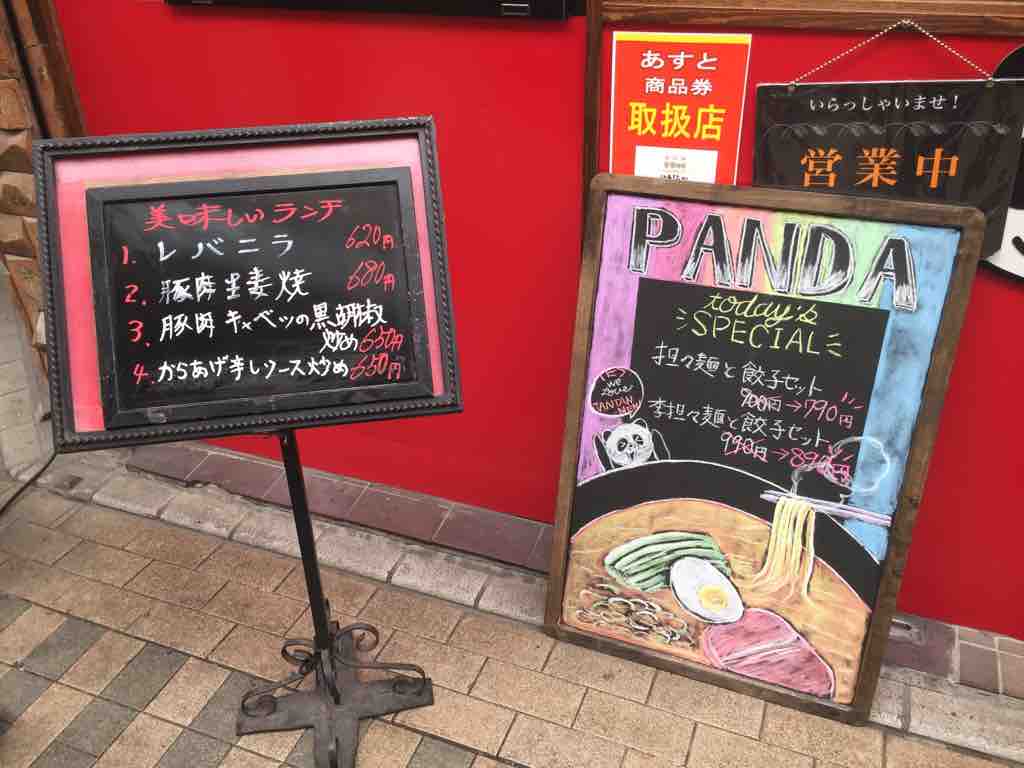 美味しいランチ
1. レバニラ 620円
2. 豚肉生姜焼 680円
3. 豚肉キャベツの黒胡椒
炒め 650円
4. からあげ辛しソース炒め 650円
あすと
商品券
取扱店
いらっしゃいませ！
営業中
PANDA
today's
SPECIAL
担々麺と餃子セット
900円→790円
李担々麺と餃子セット
990円→890円
we
love